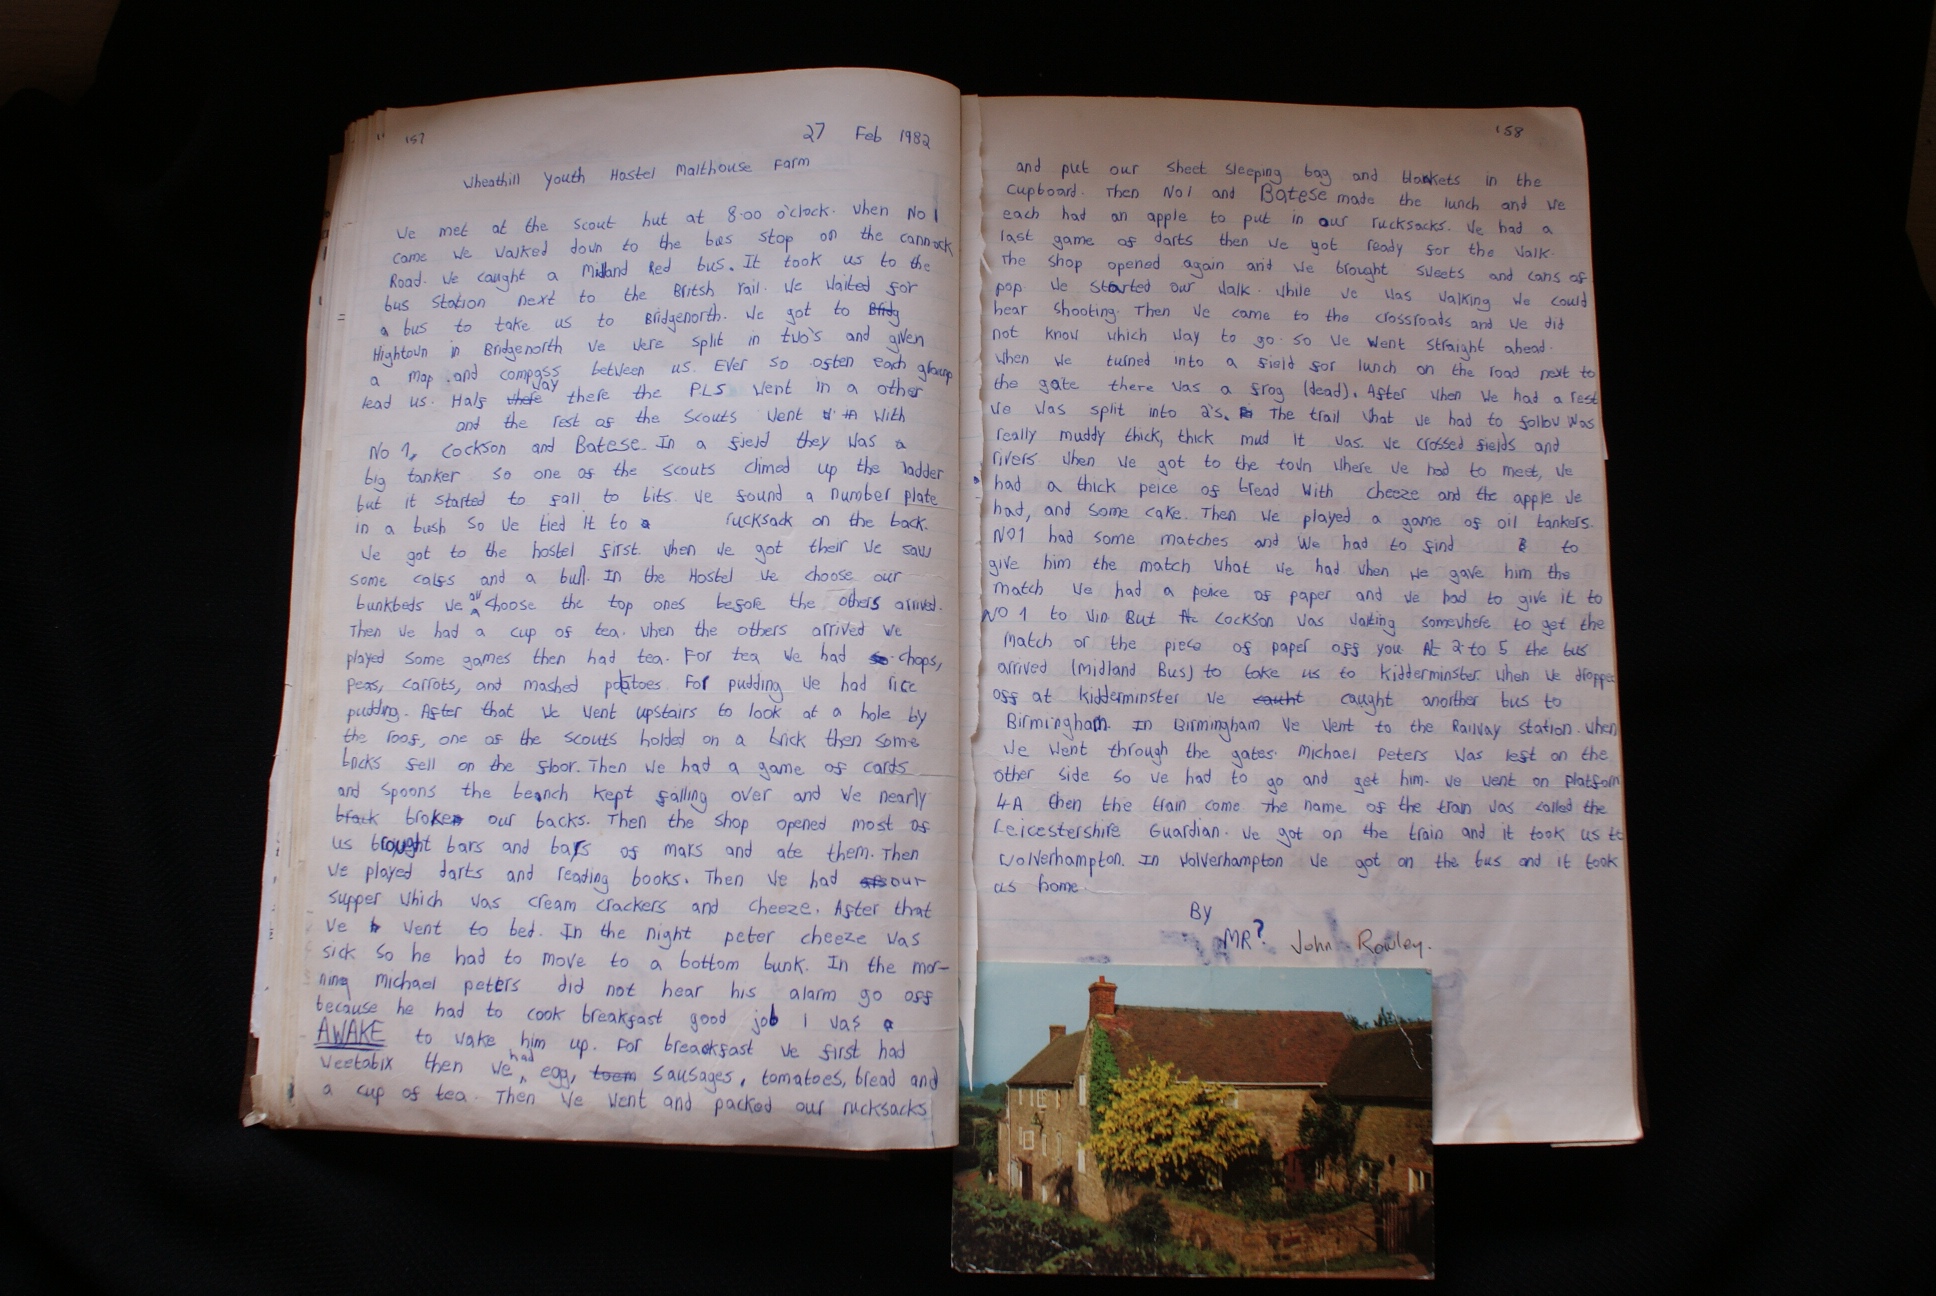 157
27 Feb 1982
Wheathill Youth Hostel Malthouse Farm
We met at the scout hut at 8.00 o'clock. When No 1
came we walked down to the bus stop on the cannock
Road. We caught a Midland Red bus. It took us to the
bus station next to the Britsh rail. We waited for
a bus to take us to Bridgenorth. We got to Bridg
Hightown in Bridgenorth we were split in two's and given
a map and compass between us. Ever so often each group
lead us. Half there way there the PLS went in a other
and the rest of the scouts went with
No 1, Cockson and Batese. In a field they was a
big tanker so one of the scouts climed up the ladder
but it started to fall to bits. We found a number plate
in a bush so we tied it to a rucksack on the back.
We got to the hostel first. When we got their we saw
some calfs and a bull. In the Hostel we choose our
bunkbeds we all choose the top ones before the others arrived.
Then we had a cup of tea. When the others arrived we
played some games then had tea. For tea we had so chops,
peas, carrots, and mashed potatoes For pudding we had rice
pudding. After that we went upstairs to look at a hole by
the roof, one of the scouts holded on a brick then some
bricks fell on the floor. Then we had a game of cards
and spoons the beanch kept falling over and we nearly
brack broken our backs. Then the shop opened most of
us brought bars and bars of mars and ate them. Then
we played darts and reading books. Then we had our
supper which was cream crackers and cheeze. After that
we went to bed. In the night peter cheeze was
sick so he had to move to a bottom bunk. In the mor-
ning michael peters did not hear his alarm go off
because he had to cook breakfast good job I was a
AWAKE to wake him up. For breackfast we first had
weetabix then we had, egg, toem sausages, tomatoes, bread and
a cup of tea. Then we went and packed our rucksacks
158
and put our sheet sleeping bag and blankets in the
cupboard. Then No1 and Batese made the lunch and we
each had an apple to put in our rucksacks. We had a
last game of darts then we got ready for the walk.
The shop opened again and we brought sweets and cans of
pop. We started our walk. While we was walking we could
hear shooting. Then we came to the crossroads and we did
not know which way to go. so we went straight ahead.
When we turned into a field for lunch on the road next to
the gate there was a frog (dead). After when we had a rest
we was split into 2's. The trail what we had to follow was
really muddy thick, thick mud it was. We crossed fields and
rivers. When we got to the town where we had to meet, we
had a thick peice of bread with cheeze and the apple we
had, and some cake. Then we played a game of oil tankers.
NO1 had some matches and we had to find to
give him the match what we had when we gave him the
match we had a peice of paper and we had to give it to
NO 1 to win. But Cockson was waiting somewhere to get the
match or the piece of paper off you. At 2 to 5 the bus
arrived (midland Bus) to take us to kidderminster. When we dropped
off at kidderminster we cauht caught anorther bus to
Birmingham. In Birmingham we went to the Railway station. When
we went through the gates. Michael Peters was left on the
other side so we had to go and get him. We went on platform
4A then the train come The name of the train was called the
Leicestershire Guardian. We got on the train and it took us to
Wolverhampton. In Wolverhampton we got on the bus and it took
us home.
By
MR? John Rowley.